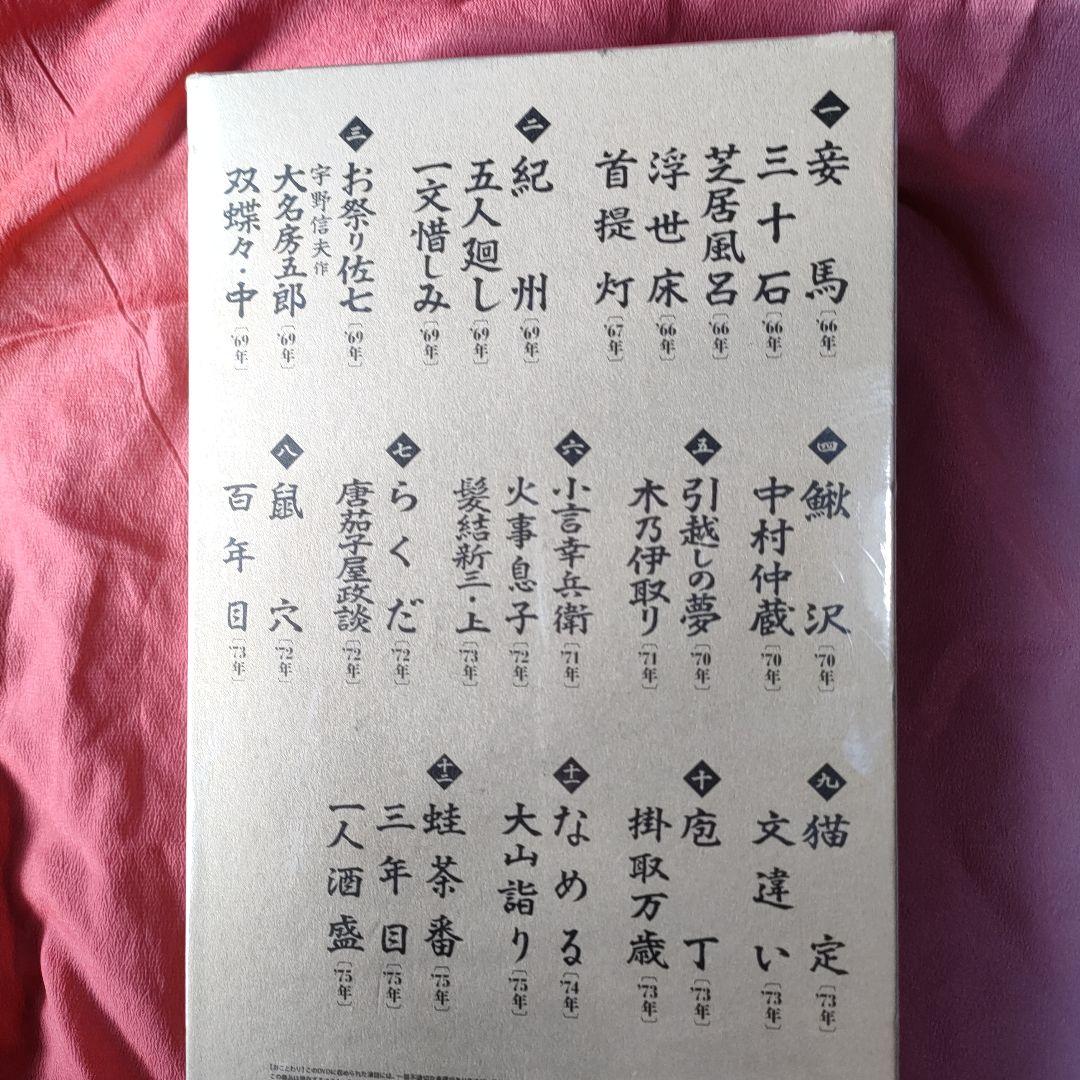 一 妾馬〔'66年〕
三十石〔'66年〕
芝居風呂〔'66年〕
浮世床〔'66年〕
首提灯〔'67年〕
二 紀州〔'69年〕
五人廻し〔'69年〕
一文惜しみ〔'69年〕
三 お祭り佐七〔'69年〕
宇野信夫作
大名房五郎〔'69年〕
双蝶々・中〔'69年〕
四 鰍沢〔'70年〕
中村仲蔵〔'70年〕
五 引越しの夢〔'70年〕
木乃伊取り〔'71年〕
六 小言幸兵衛〔'71年〕
火事息子〔'72年〕
髪結新三・上〔'73年〕
七 らくだ〔'72年〕
唐茄子屋政談〔'72年〕
八 鼠穴〔'72年〕
百年目〔'73年〕
九 猫定〔'73年〕
文違い〔'73年〕
十 庖丁〔'73年〕
掛取万歳〔'73年〕
十一 なめる〔'74年〕
大山詣り〔'75年〕
十二 蛙茶番〔'75年〕
三年目〔'75年〕
一人酒盛〔'75年〕
【おことわり】このDVDに収められた演目には、一部不適切な表現が